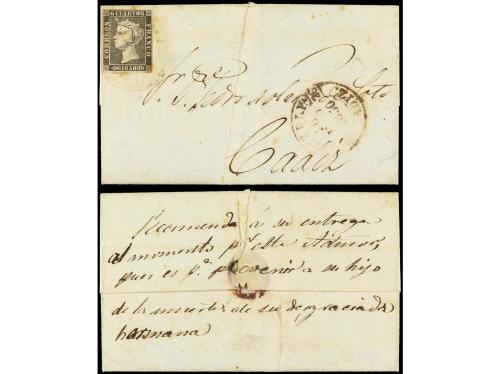 CORREOS 6 CUARTOS FRANCO 1850
S. Dn. Pedro
Soto
Cadiz
Recomenda á su entrega
al momento pr. este Admor.
pues es pa. prevenir a su hijo
de la muerte de su desgraciada
hermana